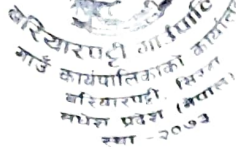 बरियारपट्टी गाउँपालि
गाउँ कार्यपालिकाको कार्यालय
बरियारपट्टी, सिरहा
मधेश प्रदेश (नेपाल)
स्था - २०७३